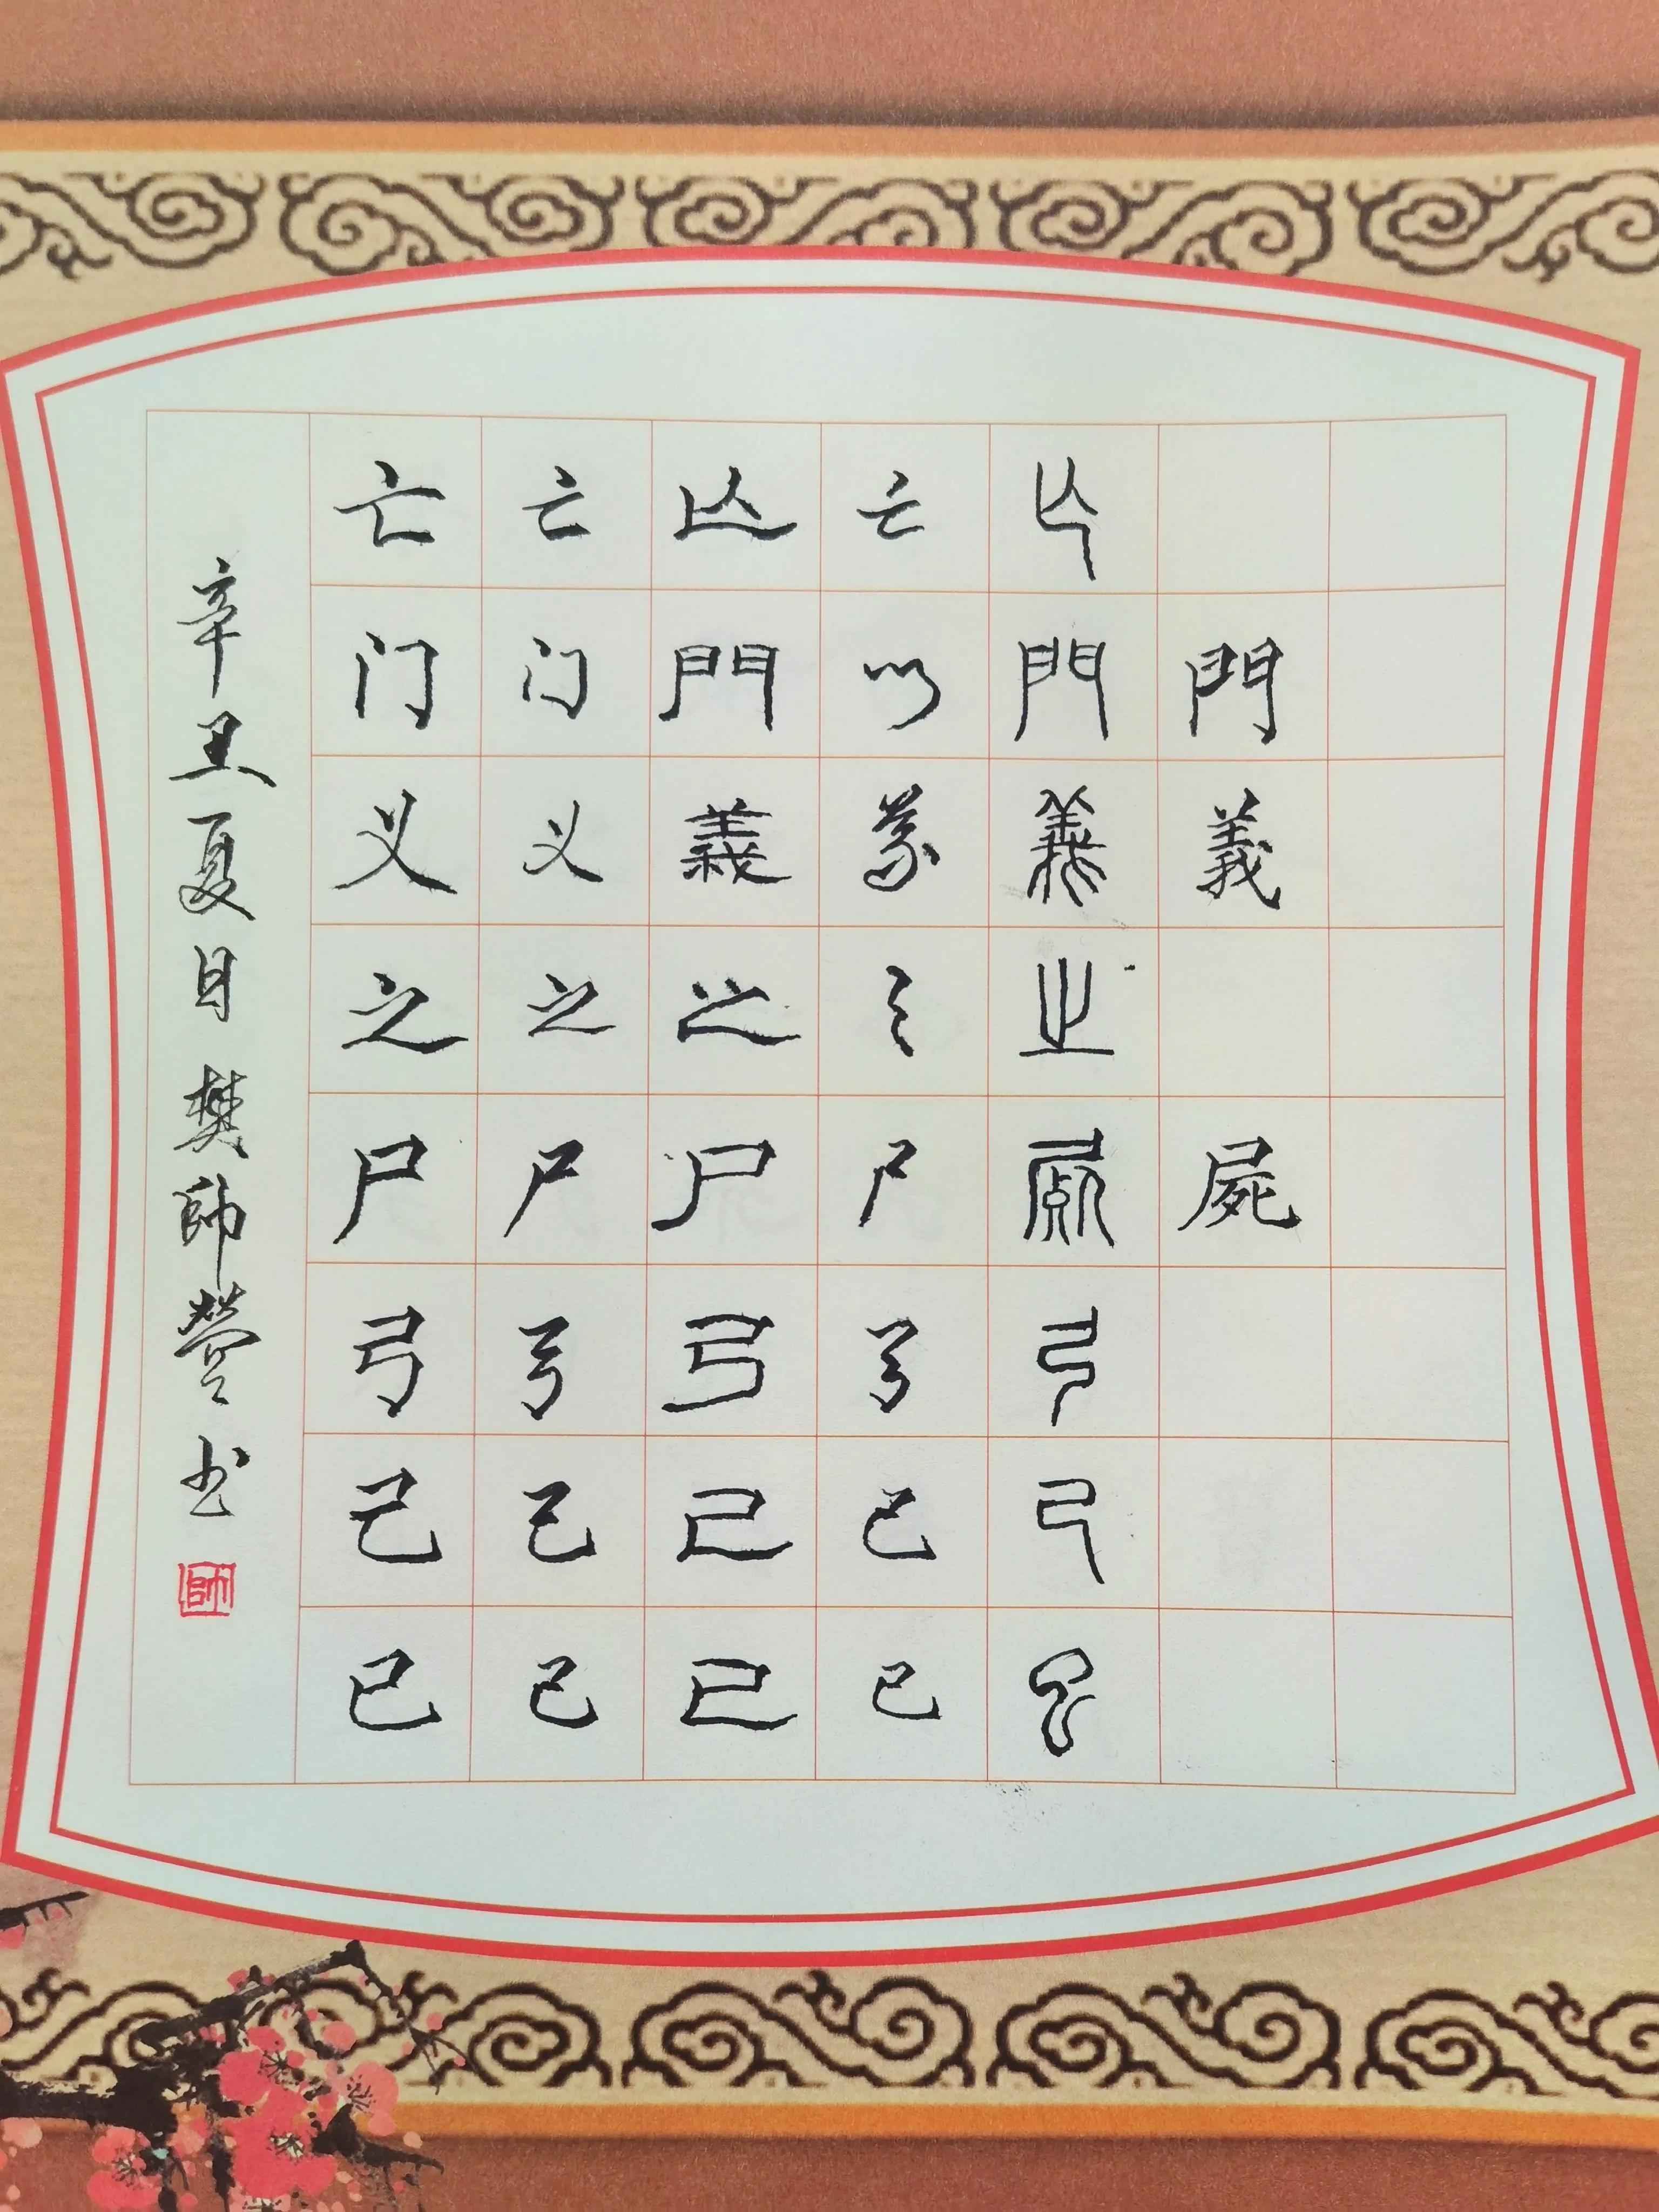 亡亡亡亡亡
门门門门門門
义义義義義義
之之之之之
尸尸尸尸屍屍
弓弓弓弓弓
己己己己己
已已已已已
辛丑夏日樊師營书
師